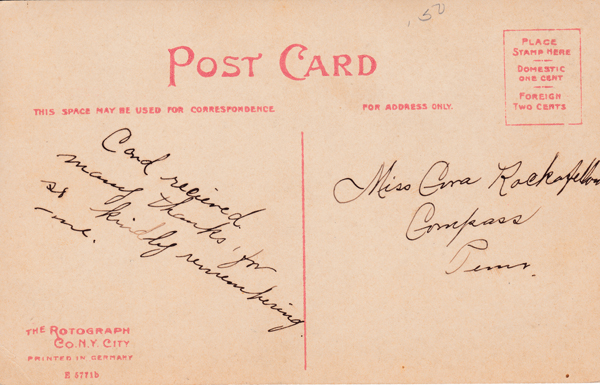 .50
POST CARD
PLACE
STAMP HERE
DOMESTIC
ONE CENT
FOREIGN
TWO CENTS
THIS SPACE MAY BE USED FOR CORRESPONDENCE
FOR ADDRESS ONLY.
Card recieved
many thanks, for
so kindly remembering
me.
Miss Cora Rockafellow
Compass
Penn.
THE ROTOGRAPH
CO. N.Y. CITY
PRINTED IN GERMANY
E 5771b